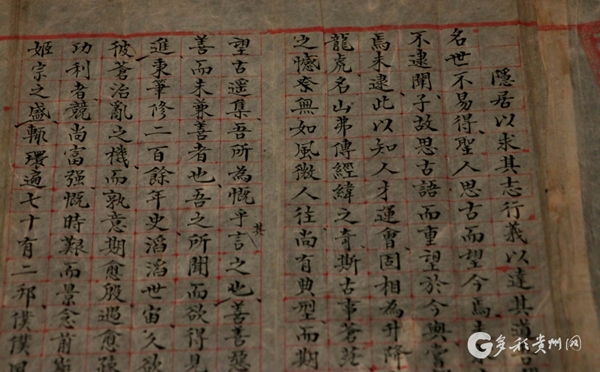 隱居以求其志行義以達其道古
名世不易得聖人思古而望今焉
不逮聞子故思古語而重望於今與嘗
焉未逮此以知人才運會固相為升降
龍虎名山弗傳經緯之奇斯古事蒼茫
之憾奈無如風微人往尚有典型而期
望古遙集吾所為慨乎其言之也善善惡
善而未兼善者也吾之所聞而欲得見
進秉筆修二百餘年史滔滔世宙久欲
彼蒼治亂之機而孰意期應殷愈
功利者競尚富强慨時艱而景念前
姬宗之盛轍環遍七十有二邦僕僕風
多彩贵州网